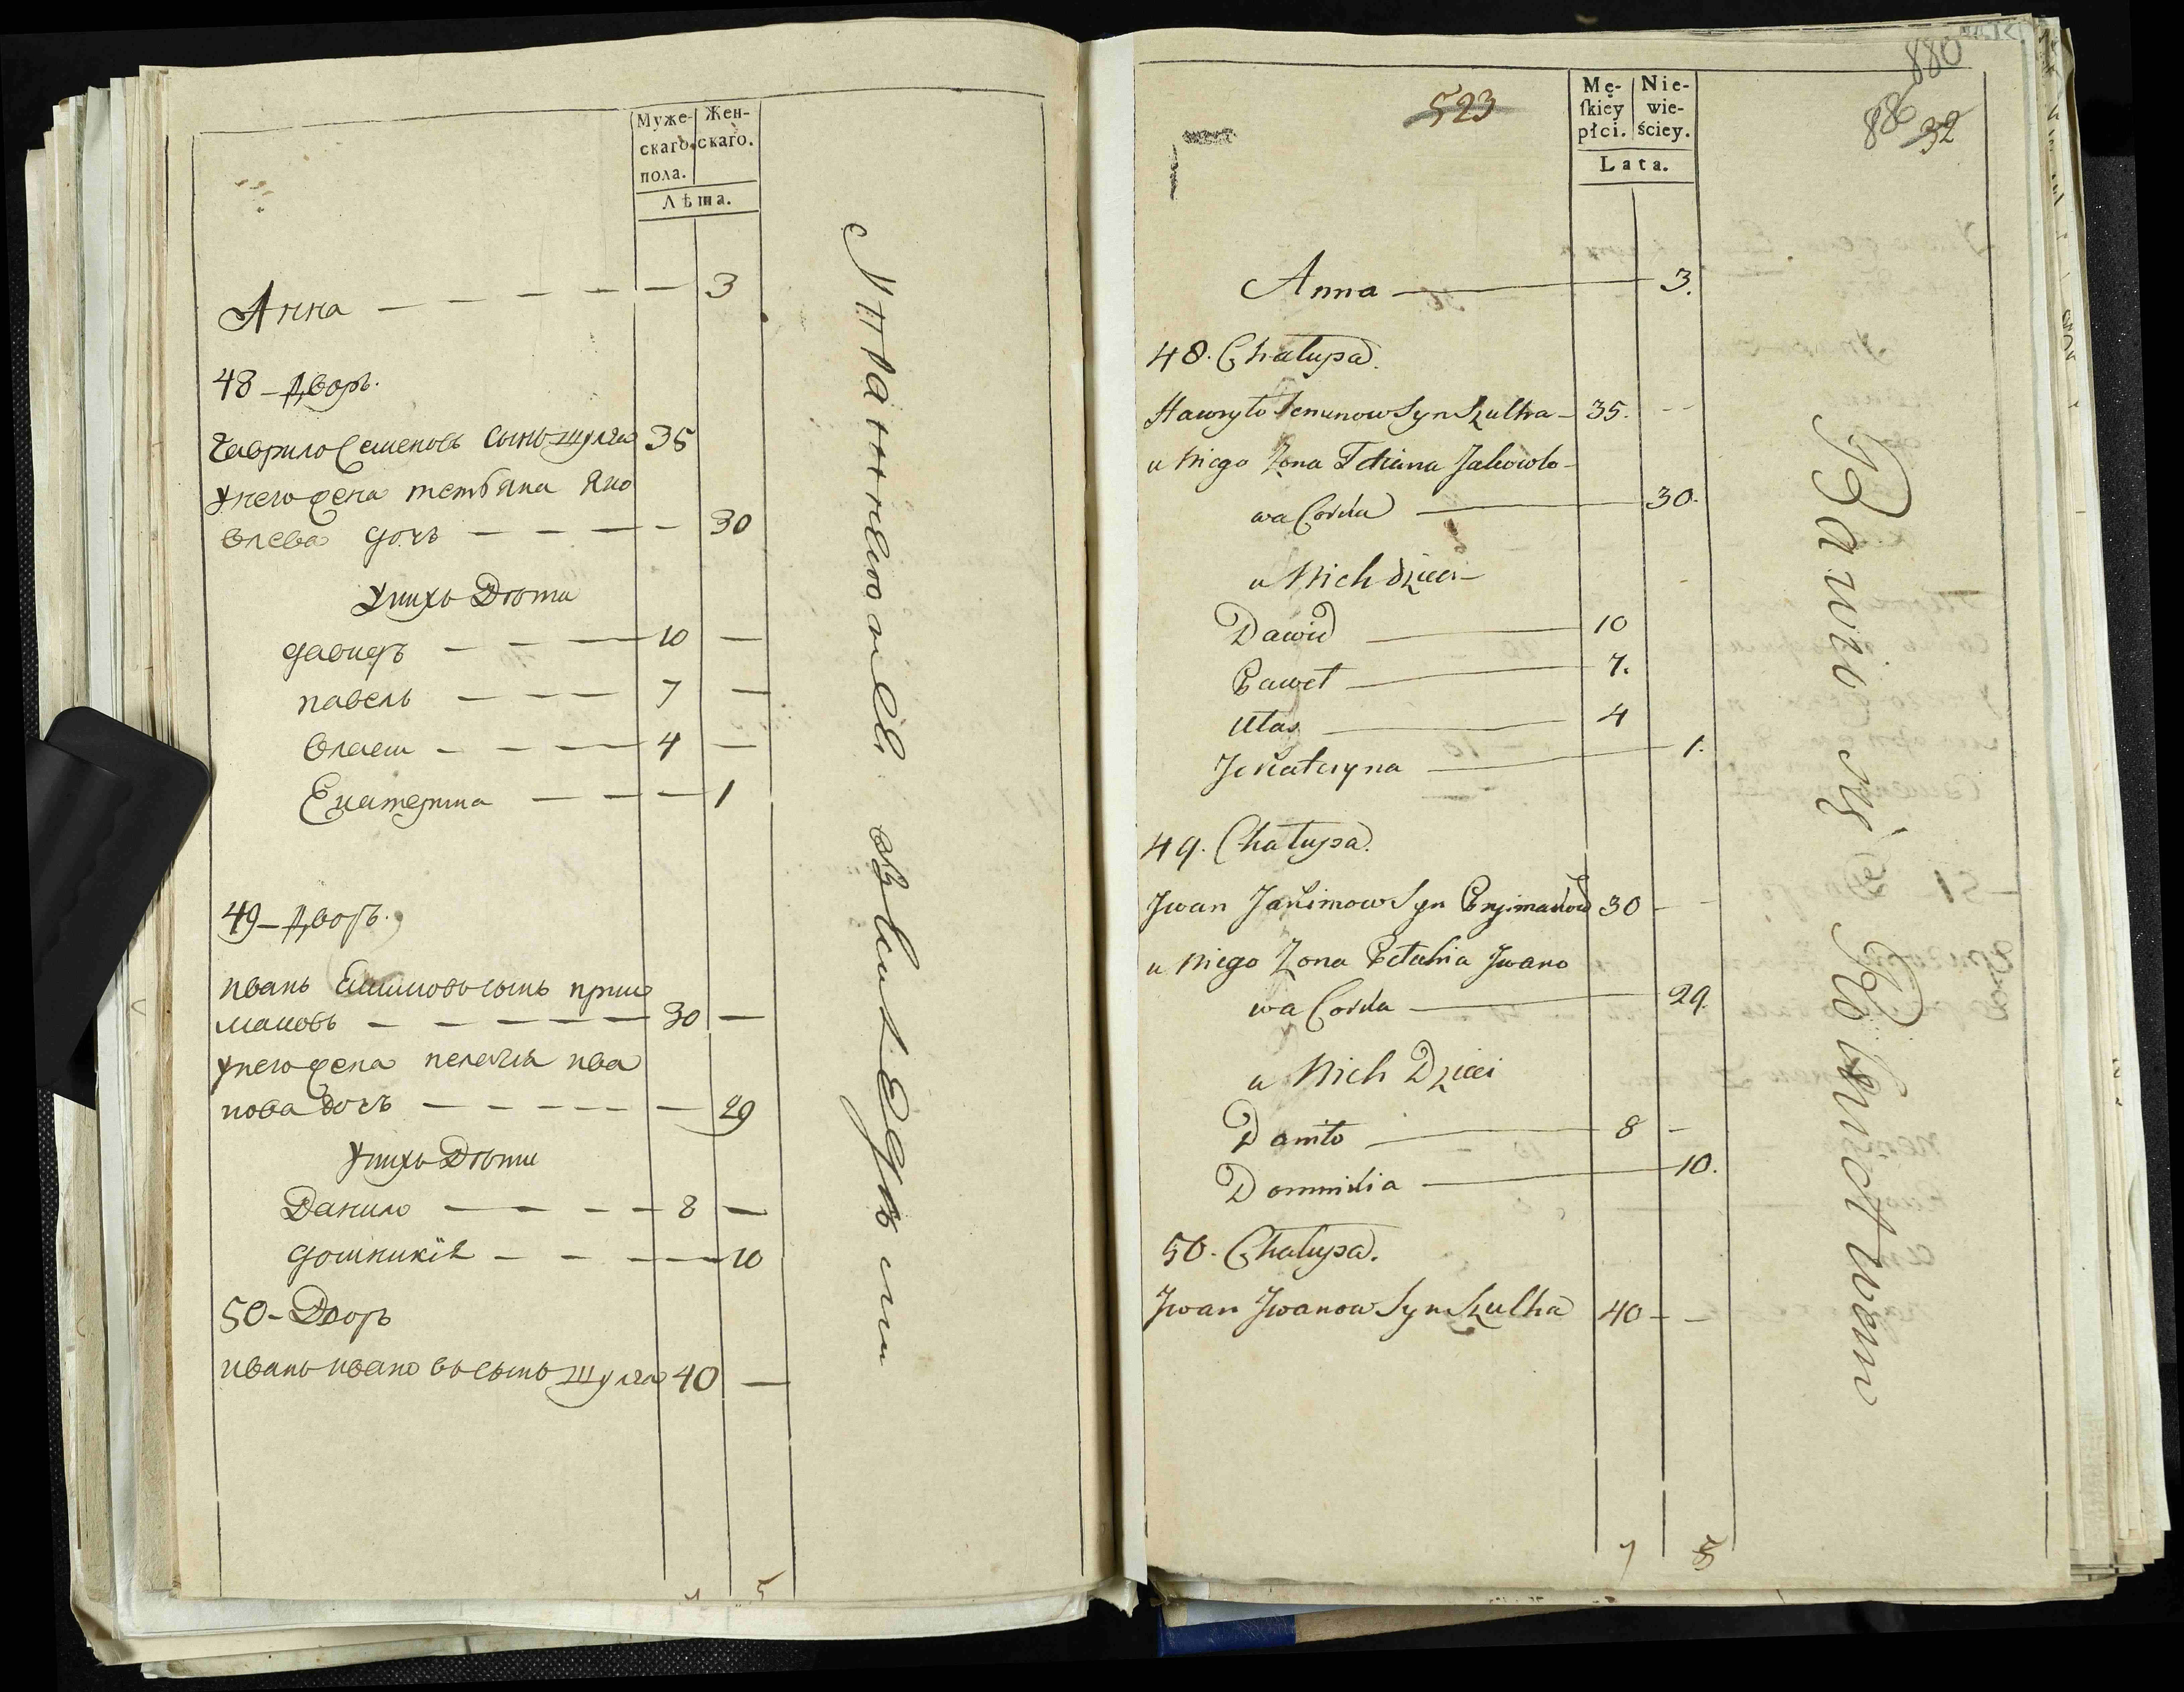 Муже-
скаго
пола.
Жен-
скаго.
Лѣта.
Анна — — — — — 3
48 – Дворъ.
Гаврило Семеновъ сынъ шулга 35
унего жена тетьяна яко
влева дочъ — — — — 30
унихъ Дѣти
давидъ — — — 10 —
павелъ — — — 7 —
власъ — — — 4 —
Екатерина — — — 1
49 – Дворъ.
иванъ сынъ прый
маковъ — — — — — 30 —
унего жена пелагия ива
нова дочъ — — — — — 29
унихъ Дѣти
Данило — — — — 8 —
домникія — — — — 10
50 – Дворъ
иванъ ивановъ сынъ шулга 40 —
7 5
523
Mę-
ſkiey
płci.
Nie-
wie-
ściey.
Lata.
880
886
32
Anna — 3.
48. Chałupa.
Hawryło Semenow Syn Szulha – 35. --
u niego Zona Tetiana Jakowle-
wa Corka — 30.
u Nich dzieci –
Dawid — 10
Paweł — 7.
Ułas — 4
Jekateryna — 1.
49. Chałupa.
Jwan Jakimow Syn Pryimaków 30 - -
u niego Zona Pełahia Jwano
wa Corka — 29.
u Nich Dzieci
Daniło — 8 –
Domnikia — 10.
50. Chałupa.
Jwan Jwanow Syn Szulha 40 - –
7 5